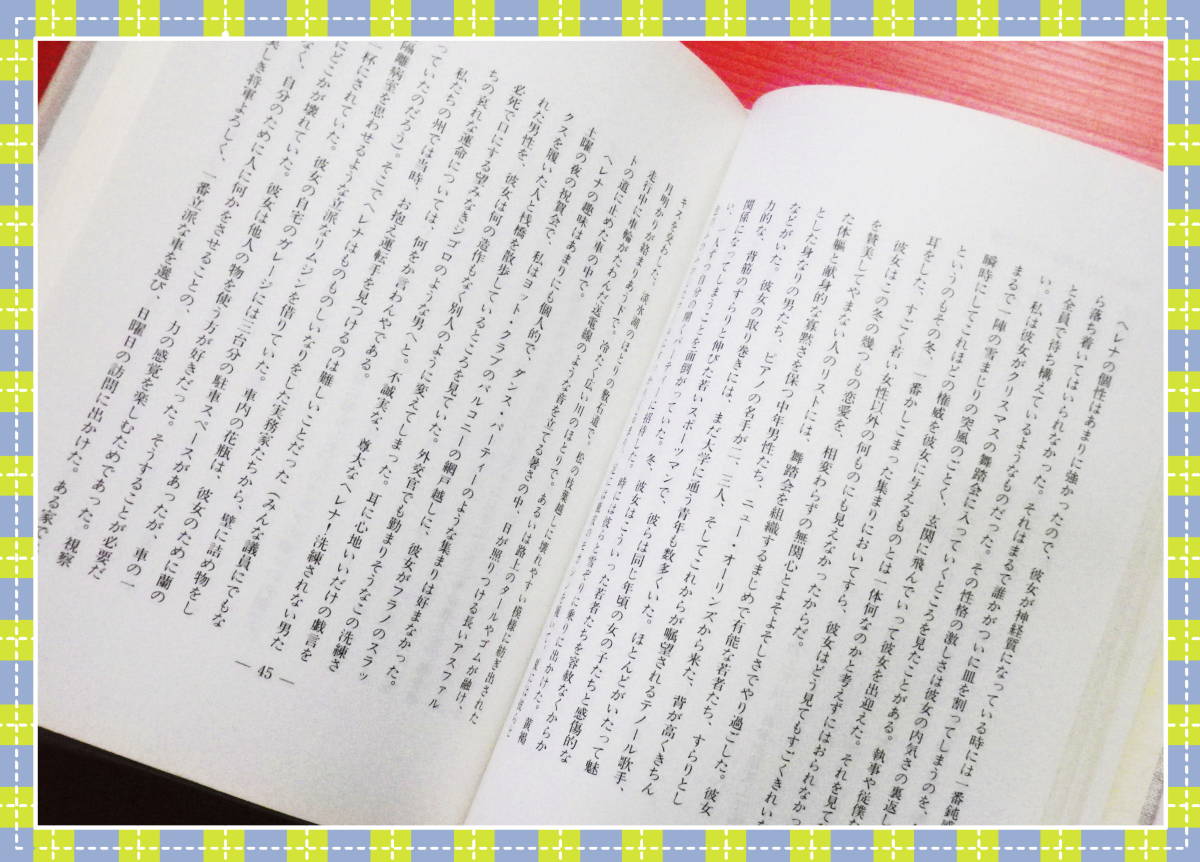 ヘレナの個性はあまりに強かったので、彼女が神経質になっている時には一番鈍感
ら落ち着いてはいられなかった。それはまるで誰かがついに皿を割ってしまうのを、
と全員で待ち構えているようなものだった。その性格の激しさは彼女の内気さの裏返し
い。私は彼女がクリスマスの舞踏会に入っていくところを見たことがある。執事や従僕
まるで一陣の雪まじりの突風のごとく、玄関に飛んでいって彼女を出迎えた。それを見て
瞬時にしてこれほどの権威を彼女に与えるものとは一体何なのかと考えずにはおられなかっ
というのもその冬、一番かしこまった集まりにおいてすら、彼女はどう見てもすごくきれい
耳をした、すごく若い女性以外の何ものにも見えなかったからだ。
彼女はこの冬の幾つもの恋愛を、相変わらずの無関心とよそよそしさでやり過ごした。彼女
を賛美してやまない人のリストには、舞踏会を組織するまじめで有能な若者たち、すらりとし
た体軀と献身的な寡黙さを保つ中年男性たち、ニュー・オーリンズから来た、背が高くきちん
とした身なりの男たち、ピアノの名手が二、三人、そしてこれからが嘱望されるテノール歌手、
などがいた。彼女の取り巻きには、まだ大学に通う青年も数多くいた。ほとんどがいたって魅
力的な、背筋のすらりと伸びた若いスポーツマンで、彼らは同じ年頃の女の子たちと感傷的な
関係になってしまうことを面倒がっていた。冬、彼女はこういった若者たちを容赦なくからか
キスを交わした、淡水湖のほとりの敷石道で。松の枝葉越しに壊れやすい模様に紡ぎ出された
月明かりが絡まりあう下で。冷たく広い川のほとりで。あるいは路上のタールやゴムが融け、
走行中に車輪がたわんだ送電線のような音を立てる暑さの中、日が照りつける長いアスファル
トの道に止めた車の中で。
ヘレナの趣味はあまりにも個人的で、ダンス・パーティーのような集まりは好まなかった。
土曜の夜の祝賀会で、私はヨット・クラブのバルコニーの網戸越しに、彼女がフラノのスラッ
クスを履いた人と桟橋を散歩しているところを見ていた。外交官でも勤まりそうなこの洗練さ
れた男性を、彼女は何の造作もなく別人のように変えてしまった。耳に心地いいだけの戯言を
必死で口にする望みなきジゴロのような男へと。不誠実な、尊大なヘレナ！洗練されない男た
ちの哀れな運命については、何をか言わんやである。
私たちの州では当時、お抱え運転手を見つけるのは難しいことだった（みんな議員にでもな
っていたのだろう）。そこでヘレナはものものしいなりをした実務家たちから、壁に詰め物をし
隔離病室を思わせるような立派なリムジンを借りていた。車内の花瓶は、彼女のために蘭の
一杯にされていた。彼女の自宅のガレージには三台分の駐車スペースがあったが、車の一
にどこかが壊れていた。彼女は他人の物を使う方が好きだった。そうすることが必要だ
なく、自分のために人に何かをさせることの、力の感覚を楽しむためであった。視察
美しき将軍よろしく、一番立派な車を選び、日曜日の訪問に出かけた。ある家で
— 45 —